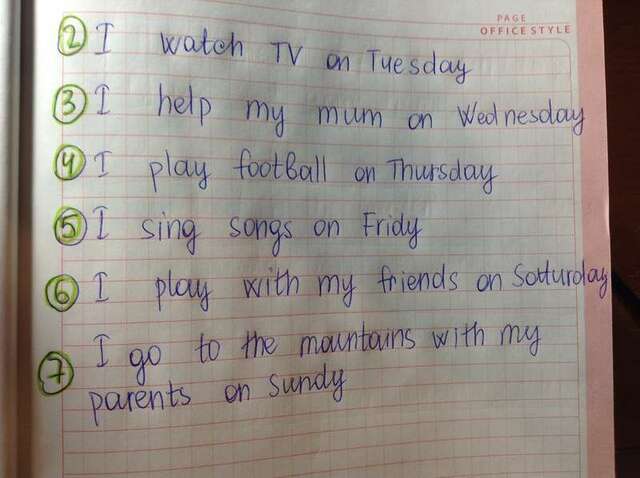 PAGE
OFFICE STYLE
2 I watch TV on Tuesday
3 I help my mum on Wednesday
4 I play football on Thursday
5 I sing songs on Fridy
6 I play with my friends on Sotturday
7 I go to the mountains with my
parents on Sundy